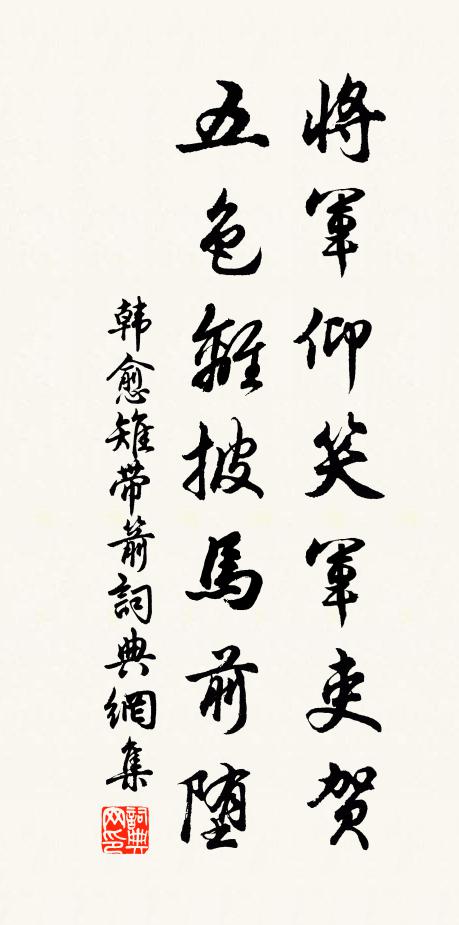 將軍仰笑軍吏賀
五色離披馬前墮
韩愈雉带箭詞典網集
詞典网印